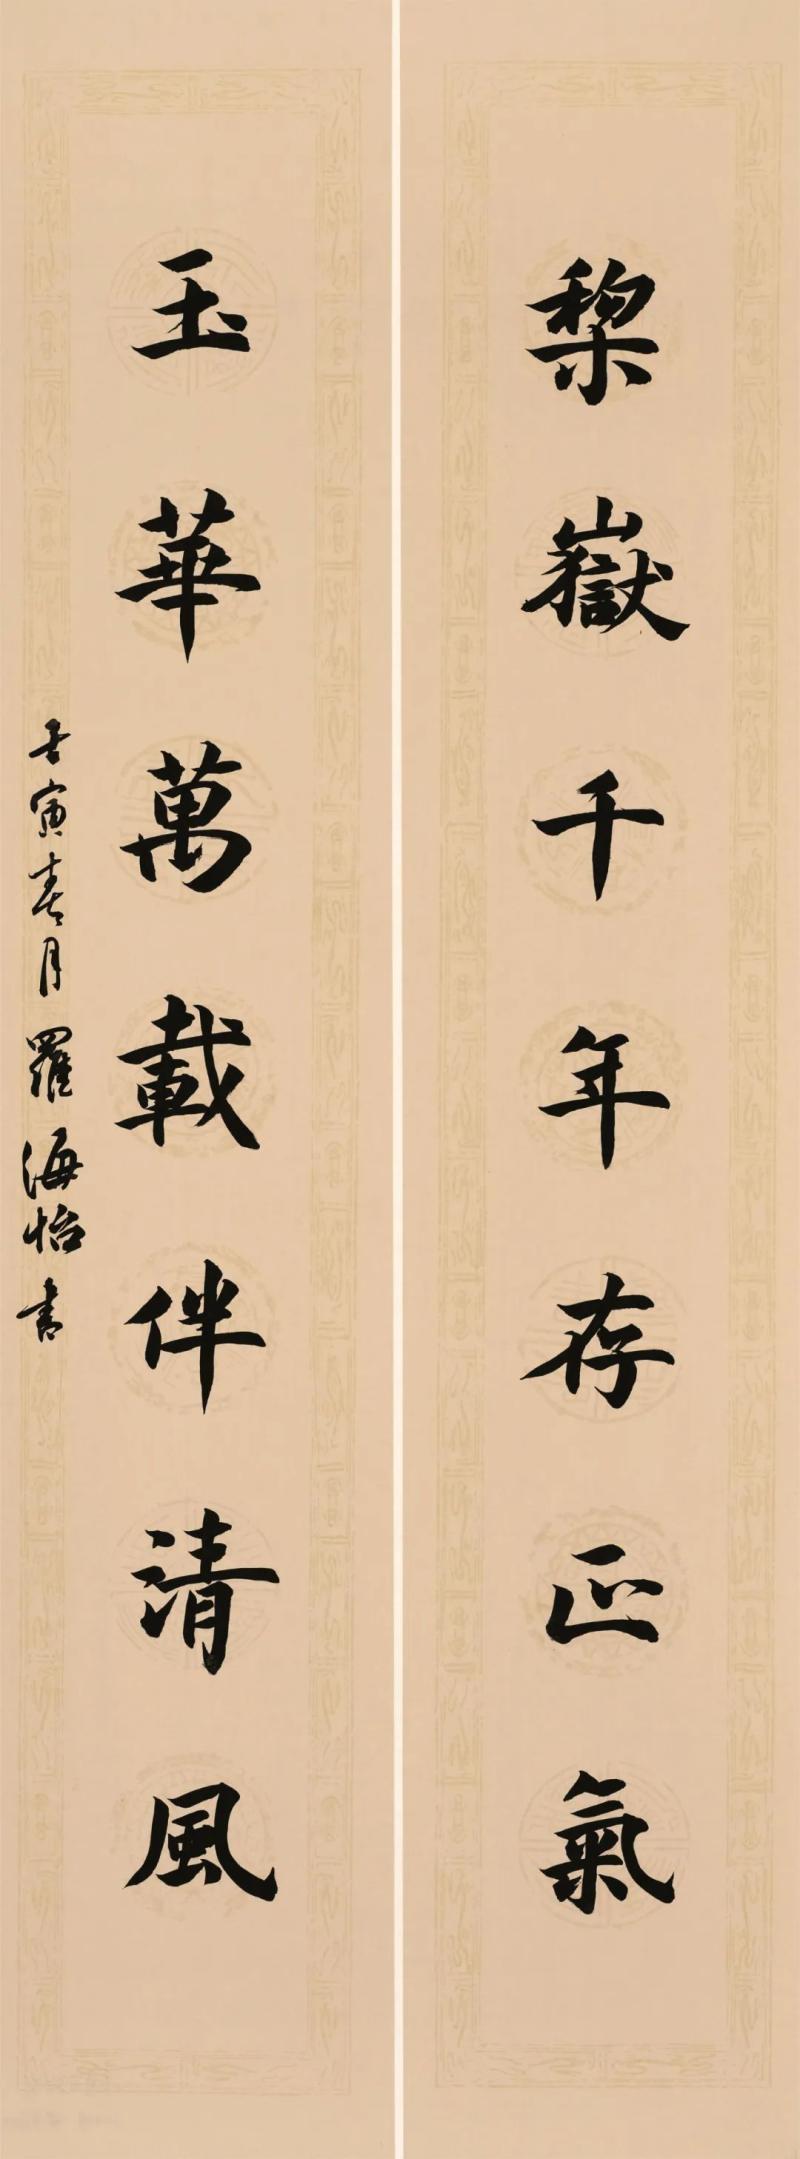 棃嶽千年存正氣
玉華萬載伴清風
壬寅春月羅海怡書